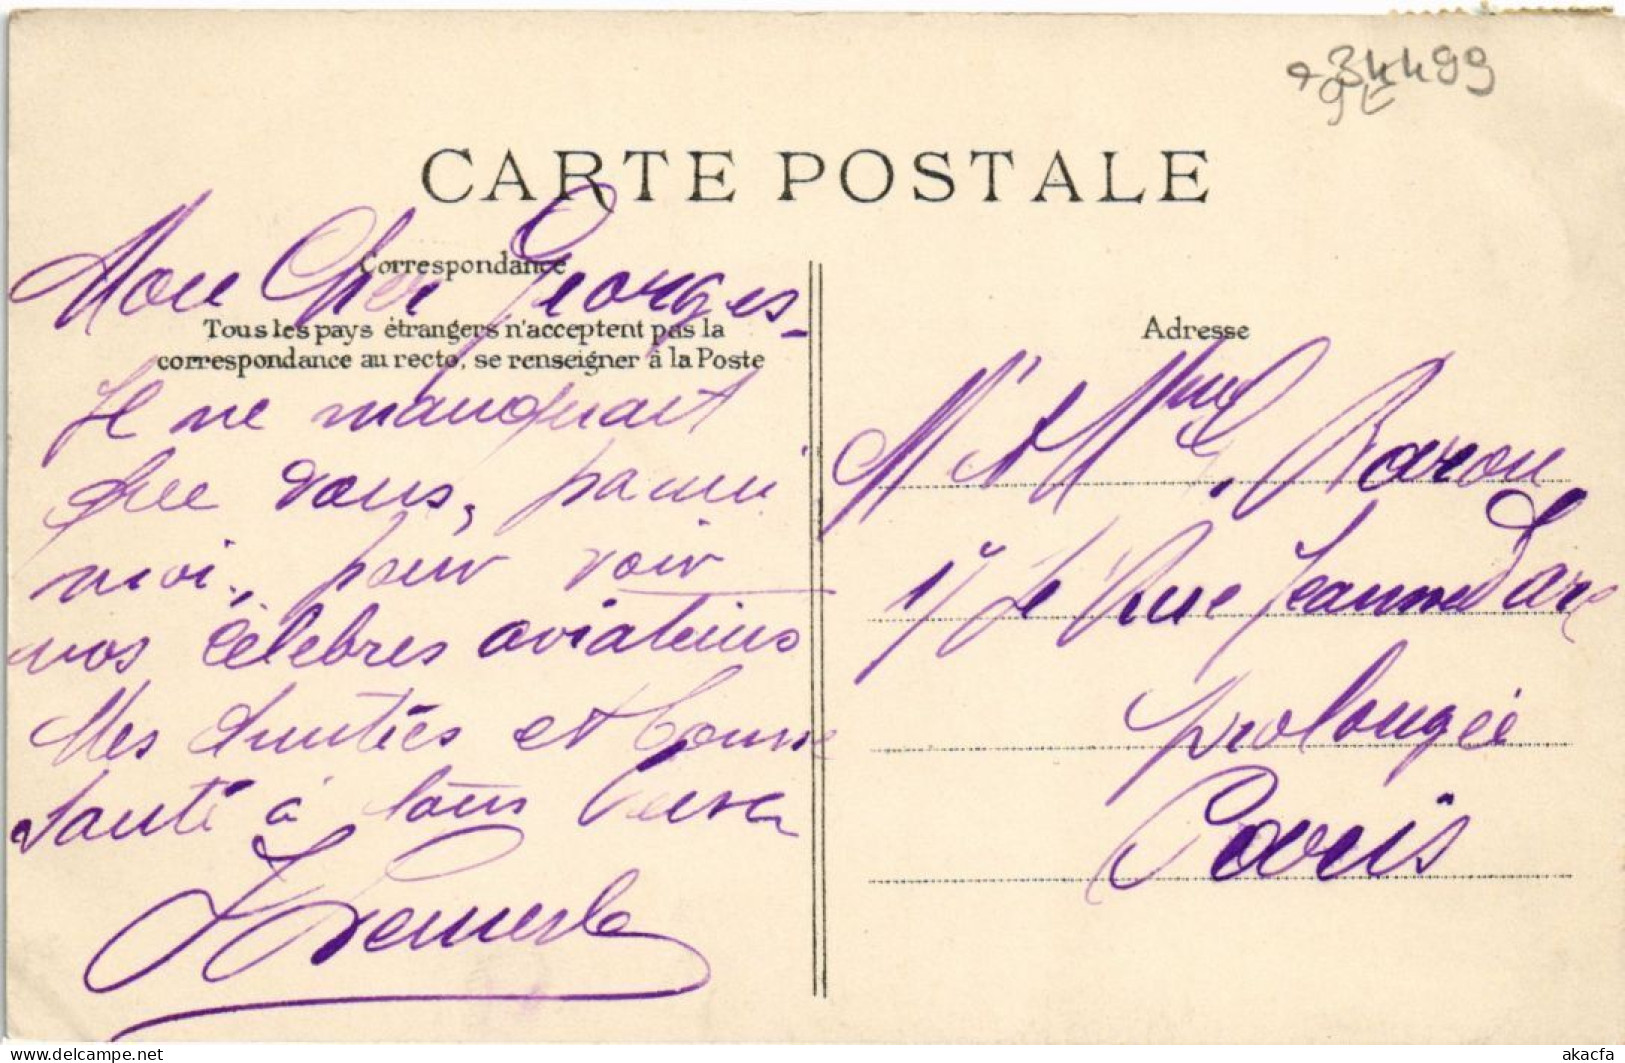 34499
CARTE POSTALE
Correspondance
Mon Cher Georges –
Tous les pays étrangers n'acceptent pas la
correspondance au recto, se renseigner à la Poste
Il ne manquait
que vous, parmi
moi, pour voir
nos célèbres aviateurs
Mes Amitiés et bonne
santé à tous
Lemerle
Adresse
Mr et Mme Baron
17 Rue Jeanne d'Arc
prolongée
Paris
delcampe.net
akacfa